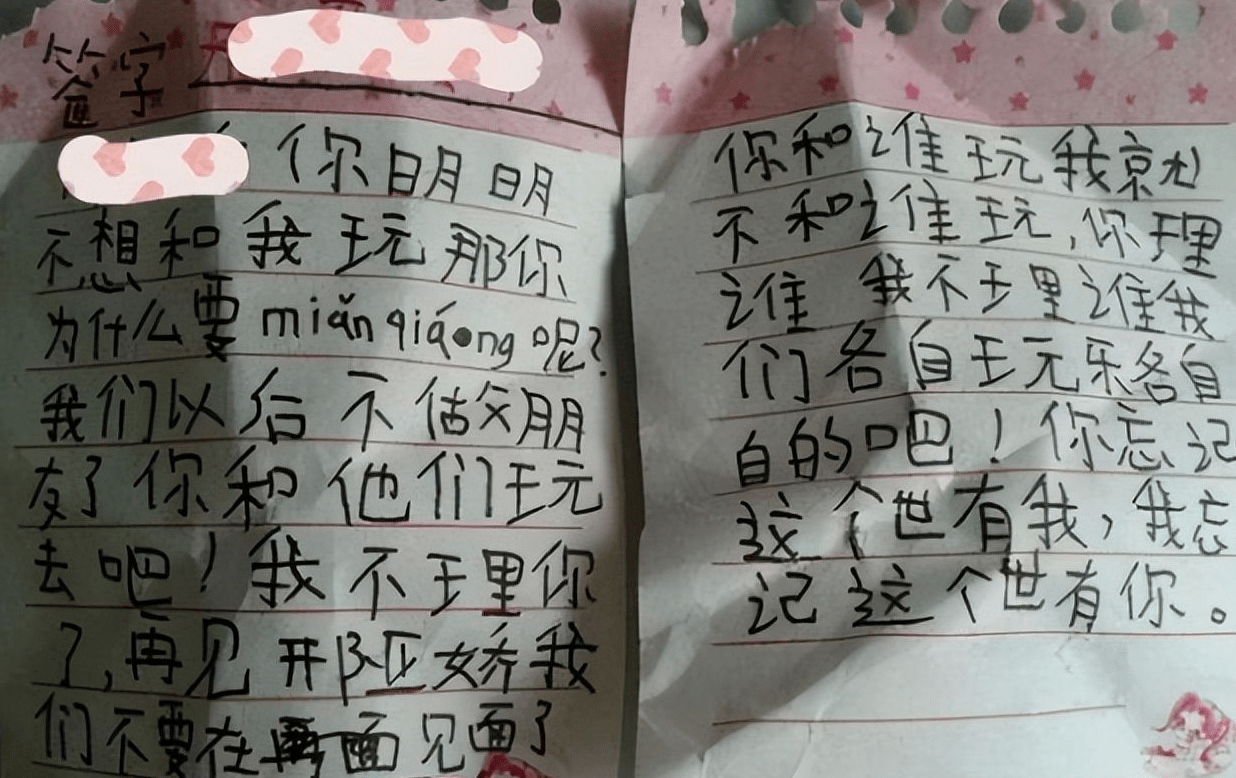 签字
你明明
不想和我玩那你
为什么要miǎn qiáng呢?
我们以后不估父朋
友了你和他们玩
去吧!我不理你
了,再见 娇我
们不要在 面见面了
你和谁玩我就
不和谁玩,你理
谁 我不理谁我
们各自玩乐各自
自的吧!你忘记
这个世有我,我忘
记这个世有你。